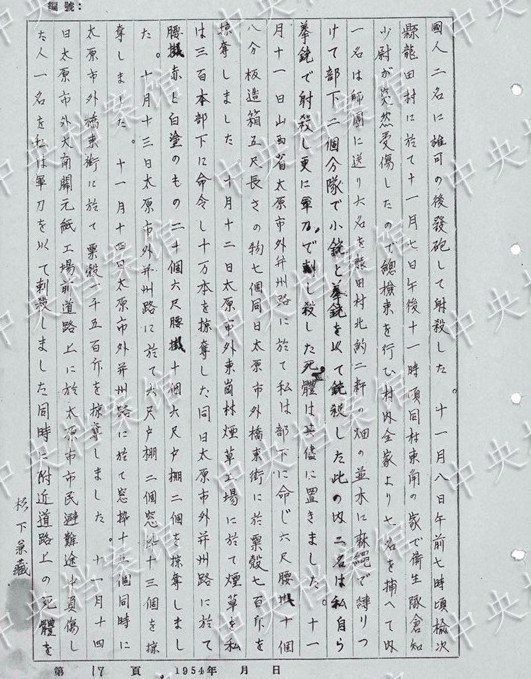 編號:
國人二名に誰可の後發砲して射殺した。十一月八日午前七時頃楡次
縣龍田村に於て十一月七日午後十一時頃同村東角の家で衛生隊倉知
少尉が突然受傷したので總檢束を行ひ村内全家より七名を捕へて内
一名は師團に送り六名を龍田村北約二新の畑の並木に麻縄で縛りつ
けて部下二個分隊で小銃と拳銃を以て銃殺した此の内二名は私自ら
拳銃で射殺し更に軍刀で刺し殺した死體は其儘に置きました。十一
月十一日山西省太原市外并州路に於て私は部下に命じ六尺腰掛十個
八分板造箱五尺長さの物七個同日太原市外橋東街に於粟殻七百斤を
掠奪しました 十月十二日太原市外東崗林煙草工場に於て煙草を私
は三百本部下に命令し十万本を掠奪した同日太原市外并州路に於て
腰掛赤し白塗のもの二十個六尺腰掛十個六尺戸棚二個を掠奪しまし
た。十月十三日太原市外并州路に於て六尺戸棚二個窓十三個を掠
奪しました。十一月十四日太原市外并州路に於て窓十個同時に
太原市外橋東街に於て粟殻一千五百斤を掠奪しました。十一月十四
日太原市外大南關元紙工場前道路上に於太原市市民避難途中負傷し
た人一名を私は軍刀を以て刺殺しました同時に附近道路上の死體を
杉下兼藏
第 17 頁 1954年 月 日
中央档案馆